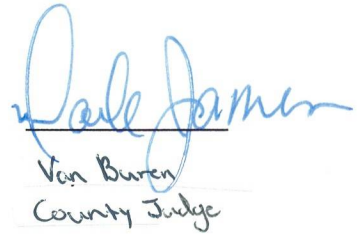 Dale James
Van Buren
County Judge